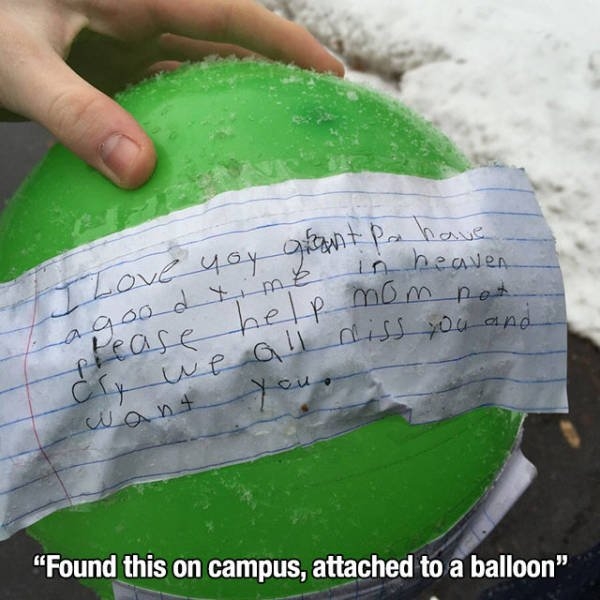 I Love yoy grant Pa have
a good time in heaven
please help mom not
cry we all miss you and
want you.
“Found this on campus, attached to a balloon”